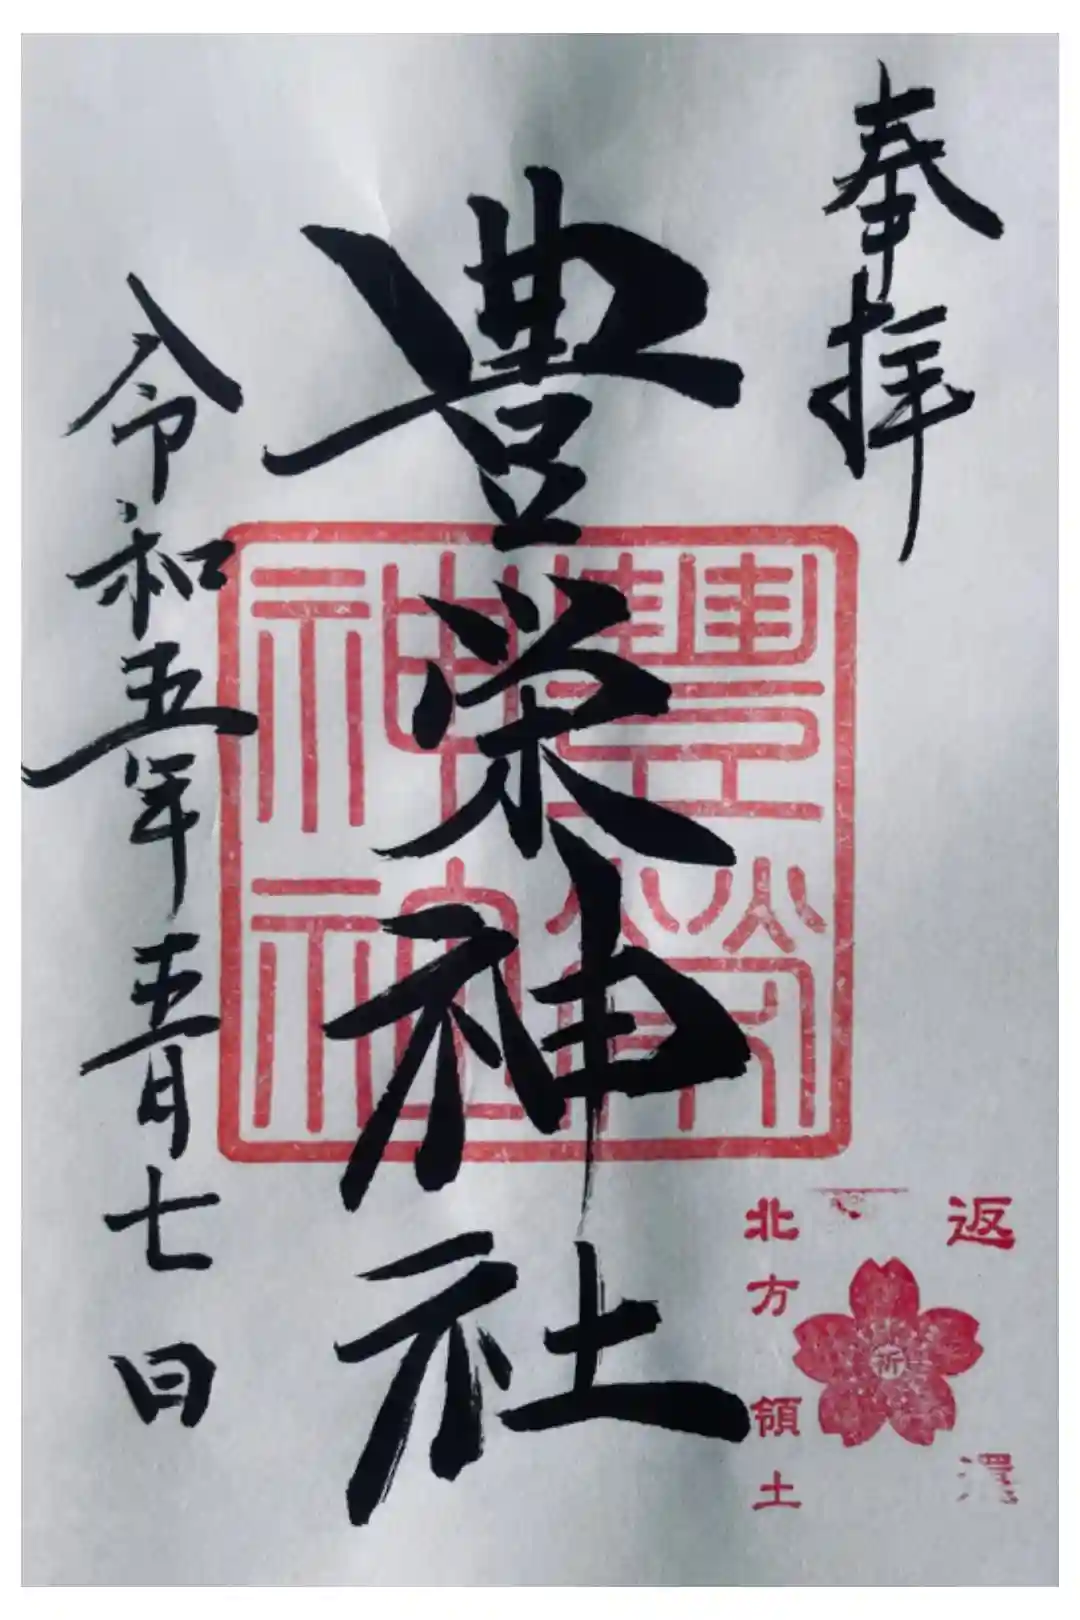 奉拝
豊栄神社
豐榮神社
令和五年五月七日
北方領土
返還
祈